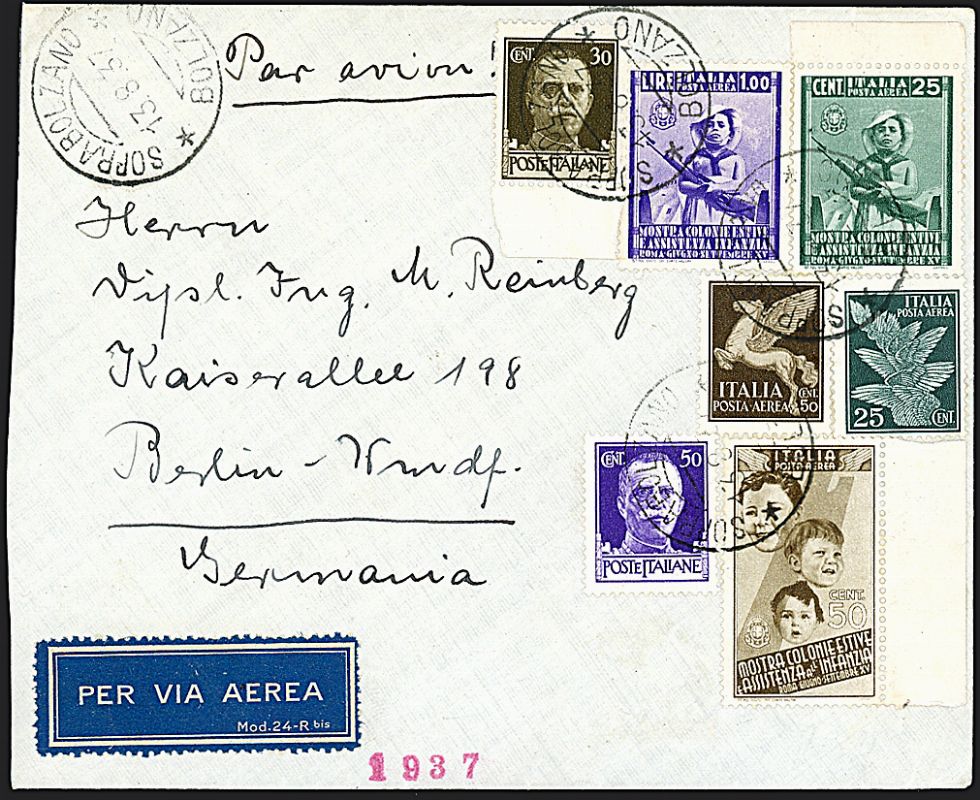 SOPRABOLZANO * BOLZANO *
13.8.37
Par avion!
CENT. 30
POSTE ITALIANE
LIRE ITALIA 1.00
POSTA AEREA
MOSTRA COLONIE ESTIVE
E ASSISTENZA INFANZIA
ROMA GIUGNO-SETTEMBRE XV
CENT. ITALIA 25
POSTA AEREA
MOSTRA COLONIE ESTIVE
E ASSISTENZA INFANZIA
ROMA GIUGNO-SETTEMBRE XV
Herrn
Dipl. Ing. M. Reinberg
Kaiserallee 198
Berlin - Wmdf.
Germania
ITALIA
POSTA AEREA
CENT. 50
ITALIA
POSTA AEREA
25 CENT.
CENT. 50
POSTE ITALIANE
ITALIA
POSTA AEREA
CENT.
50
MOSTRA COLONIE ESTIVE
E ASSISTENZA ALL'INFANZIA
ROMA GIUGNO-SETTEMBRE XV
PER VIA AEREA
Mod.24-R bis
1937